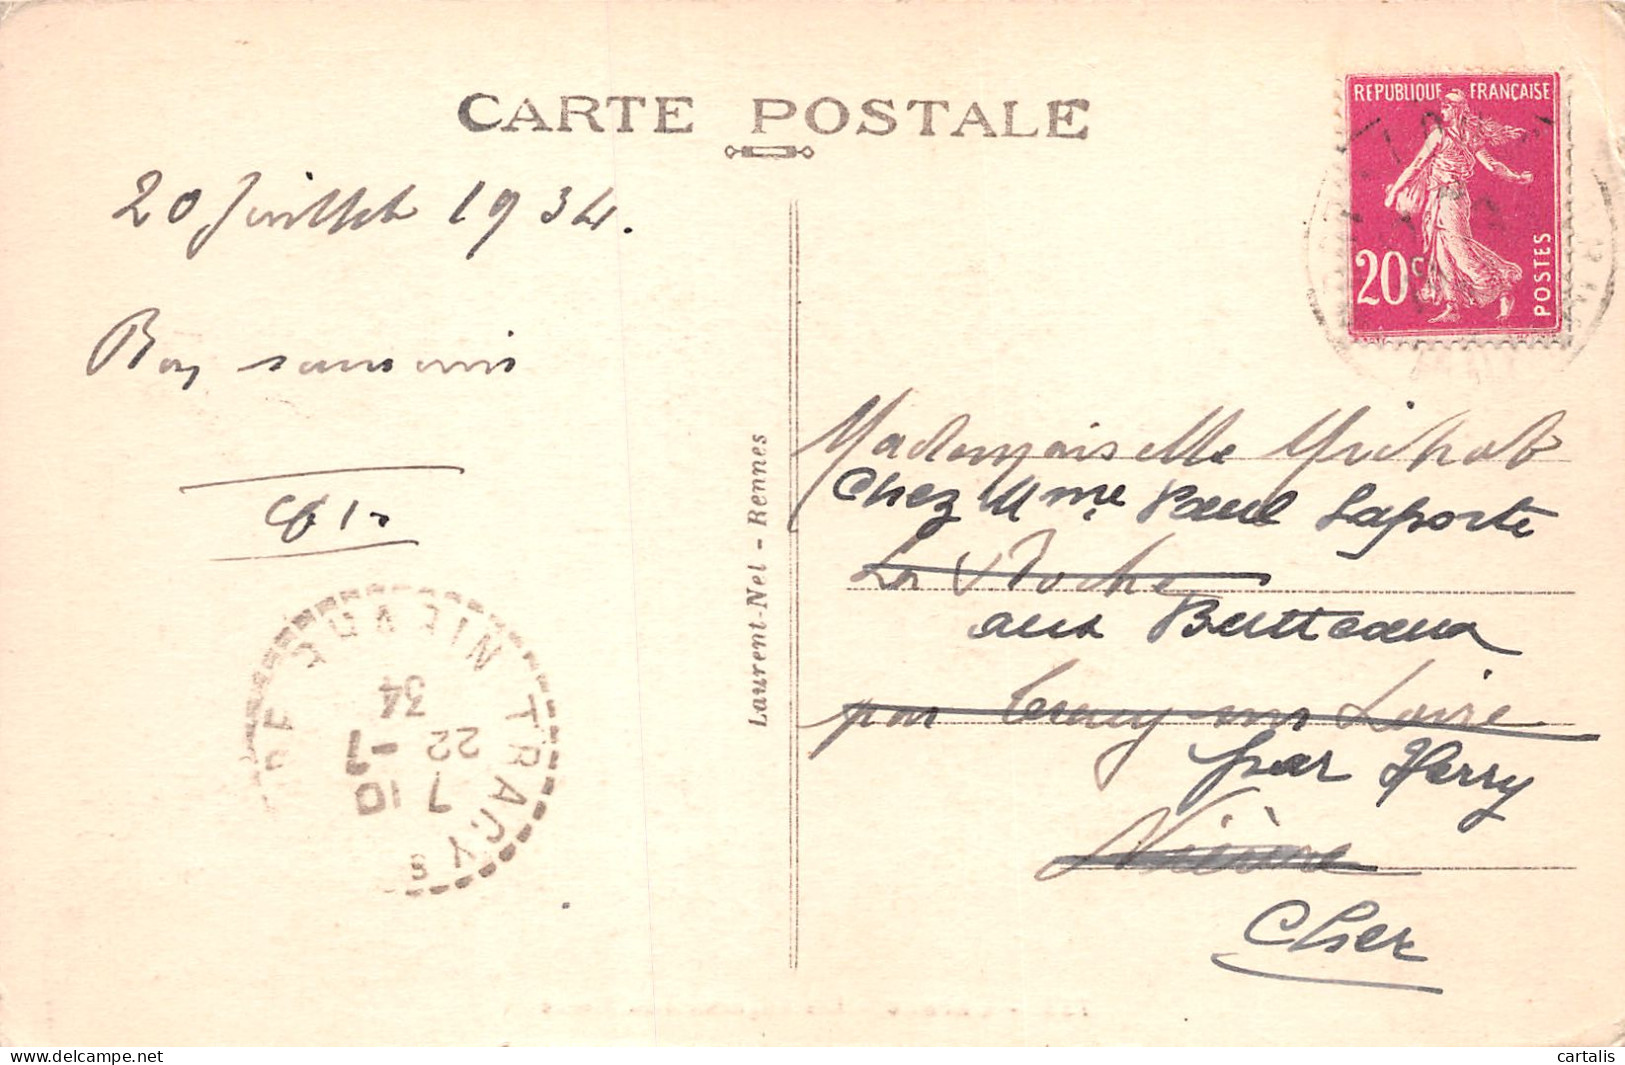 CARTE POSTALE
REPUBLIQUE FRANÇAISE
20c
POSTES
20 Juillet 1934.
Bon souvenir
Laurent-Nel - Rennes
Mademoiselle Michot
Chez Mme Paul Laporte
La Roche
aux Butteaux
par Tracy sur Loire
par Herry
Nièvre
Cher
TRACY S
7 10
22 -7
34
www.delcampe.net
cartalis